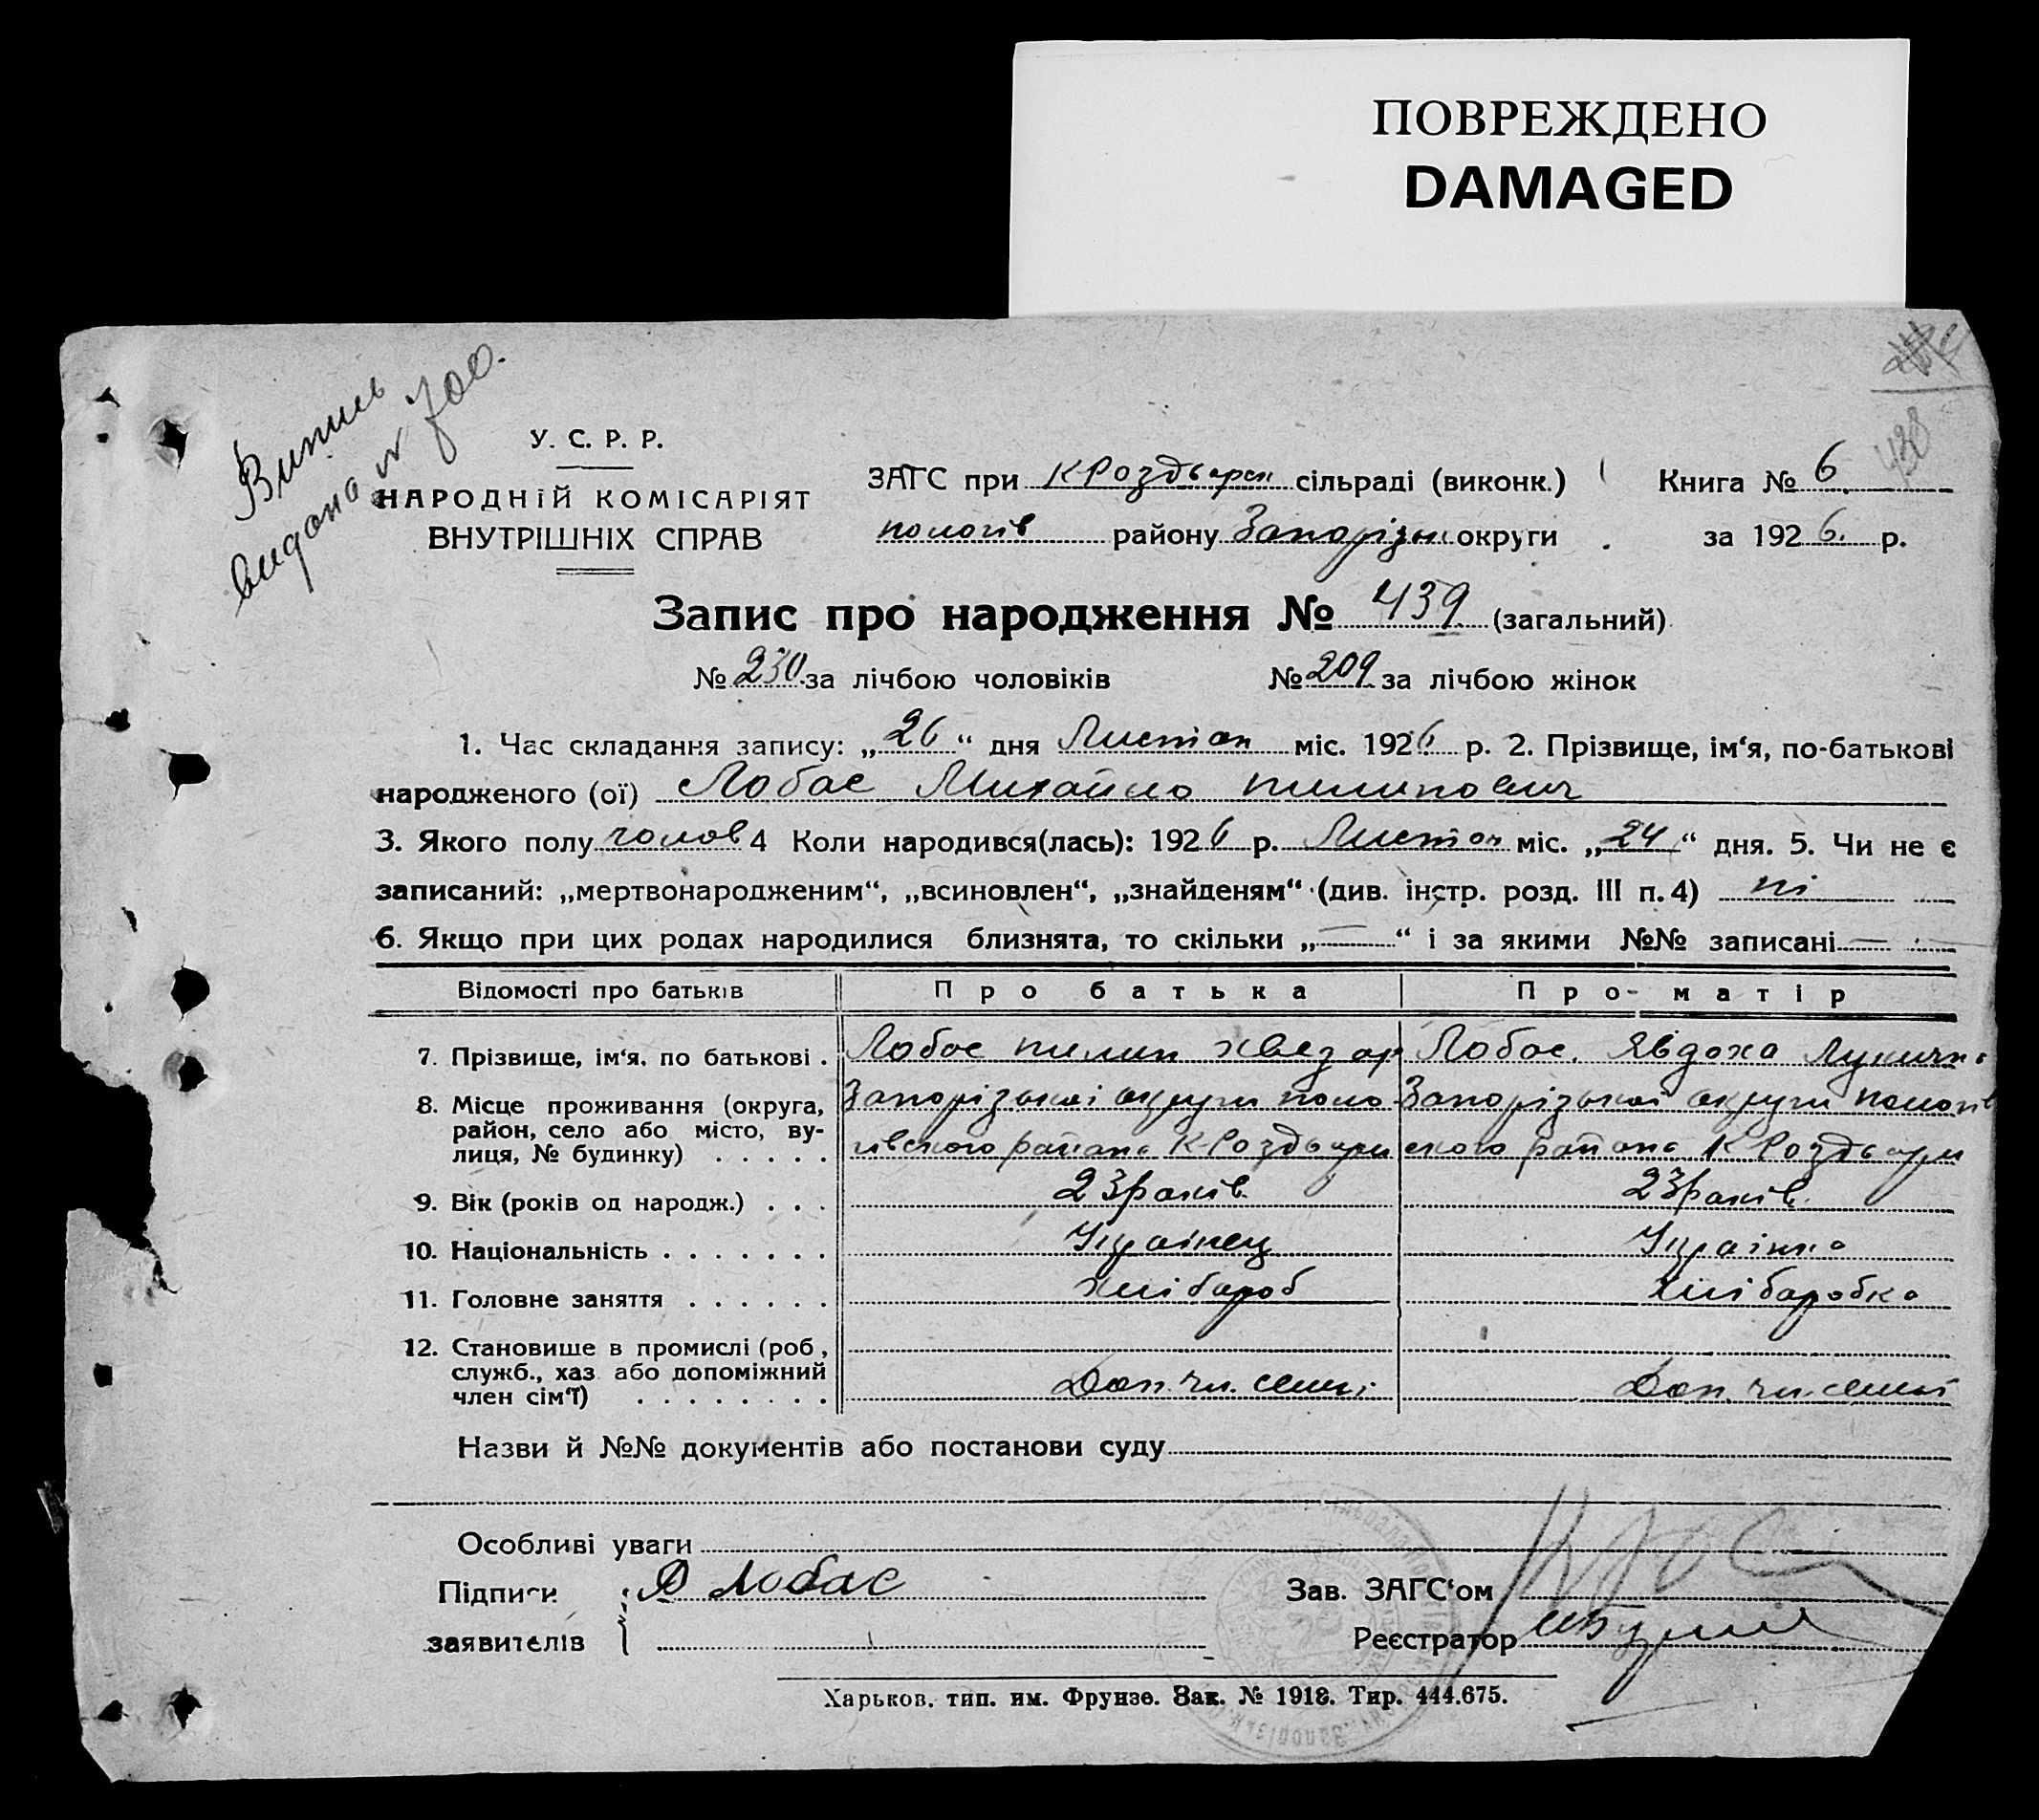 ПОВРЕЖДЕНО
DAMAGED
438
Випись
видана № 700.
У. С. Р. Р.
НАРОДНІЙ КОМІСАРІЯТ
ВНУТРІШНІХ СПРАВ
ЗАГС при К Роздьорск сільраді (виконк.)
Книга № 6
пологів району Запорізьк округи
за 1926 р.
Запис про народження № 439 (загальний)
№ 230 за лічбою чоловіків № 209 за лічбою жінок
1. Час складання запису: „26“ дня Листоп міс. 1926 р. 2. Прізвище, ім‘я, по-батькові
народженого (ої) Лобас Михайло пилипович
3. Якого полу чолов 4 Коли народився(лась): 1926 р. Листоп міс. „24“ дня. 5. Чи не є
записаний: „мертвонародженим“, „всиновлен“, „знайденям“ (див. інстр. розд. III п. 4) ні
6. Якщо при цих родах народилися близнята, то скільки „—“ і за якими №№ записані —
Відомості про батьків Про батька Про матір
7. Прізвище, ім‘я, по батькові . Лобас пилип Хведор Лобас Явдоха Лукична
8. Місце проживання (округа, Запорізької округи поло Запорізької округи пологів
район, село або місто, ву-
лиця, № будинку) . . . . . гівского района К Роздьори ского района К Роздьори
9. Вік (років од народж.) . . . 23 років 23 років
10. Національність . . . . . . . Українец Українка
11. Головне заняття . . . . . . хлібороб хліборобка
12. Становище в промислі (роб,
служб., хаз або допоміжний
член сім‘ї) . . . . . . . . Доп. чл. семї Доп чл. семї
Назви й №№ документів або постанови суду
Особливі уваги
Підписи Лобас Зав. ЗАГС‘ом
заявителів Реєстратор
Харьков. тип. им. Фрунзе. Зак. № 1918. Тир. 444.675.